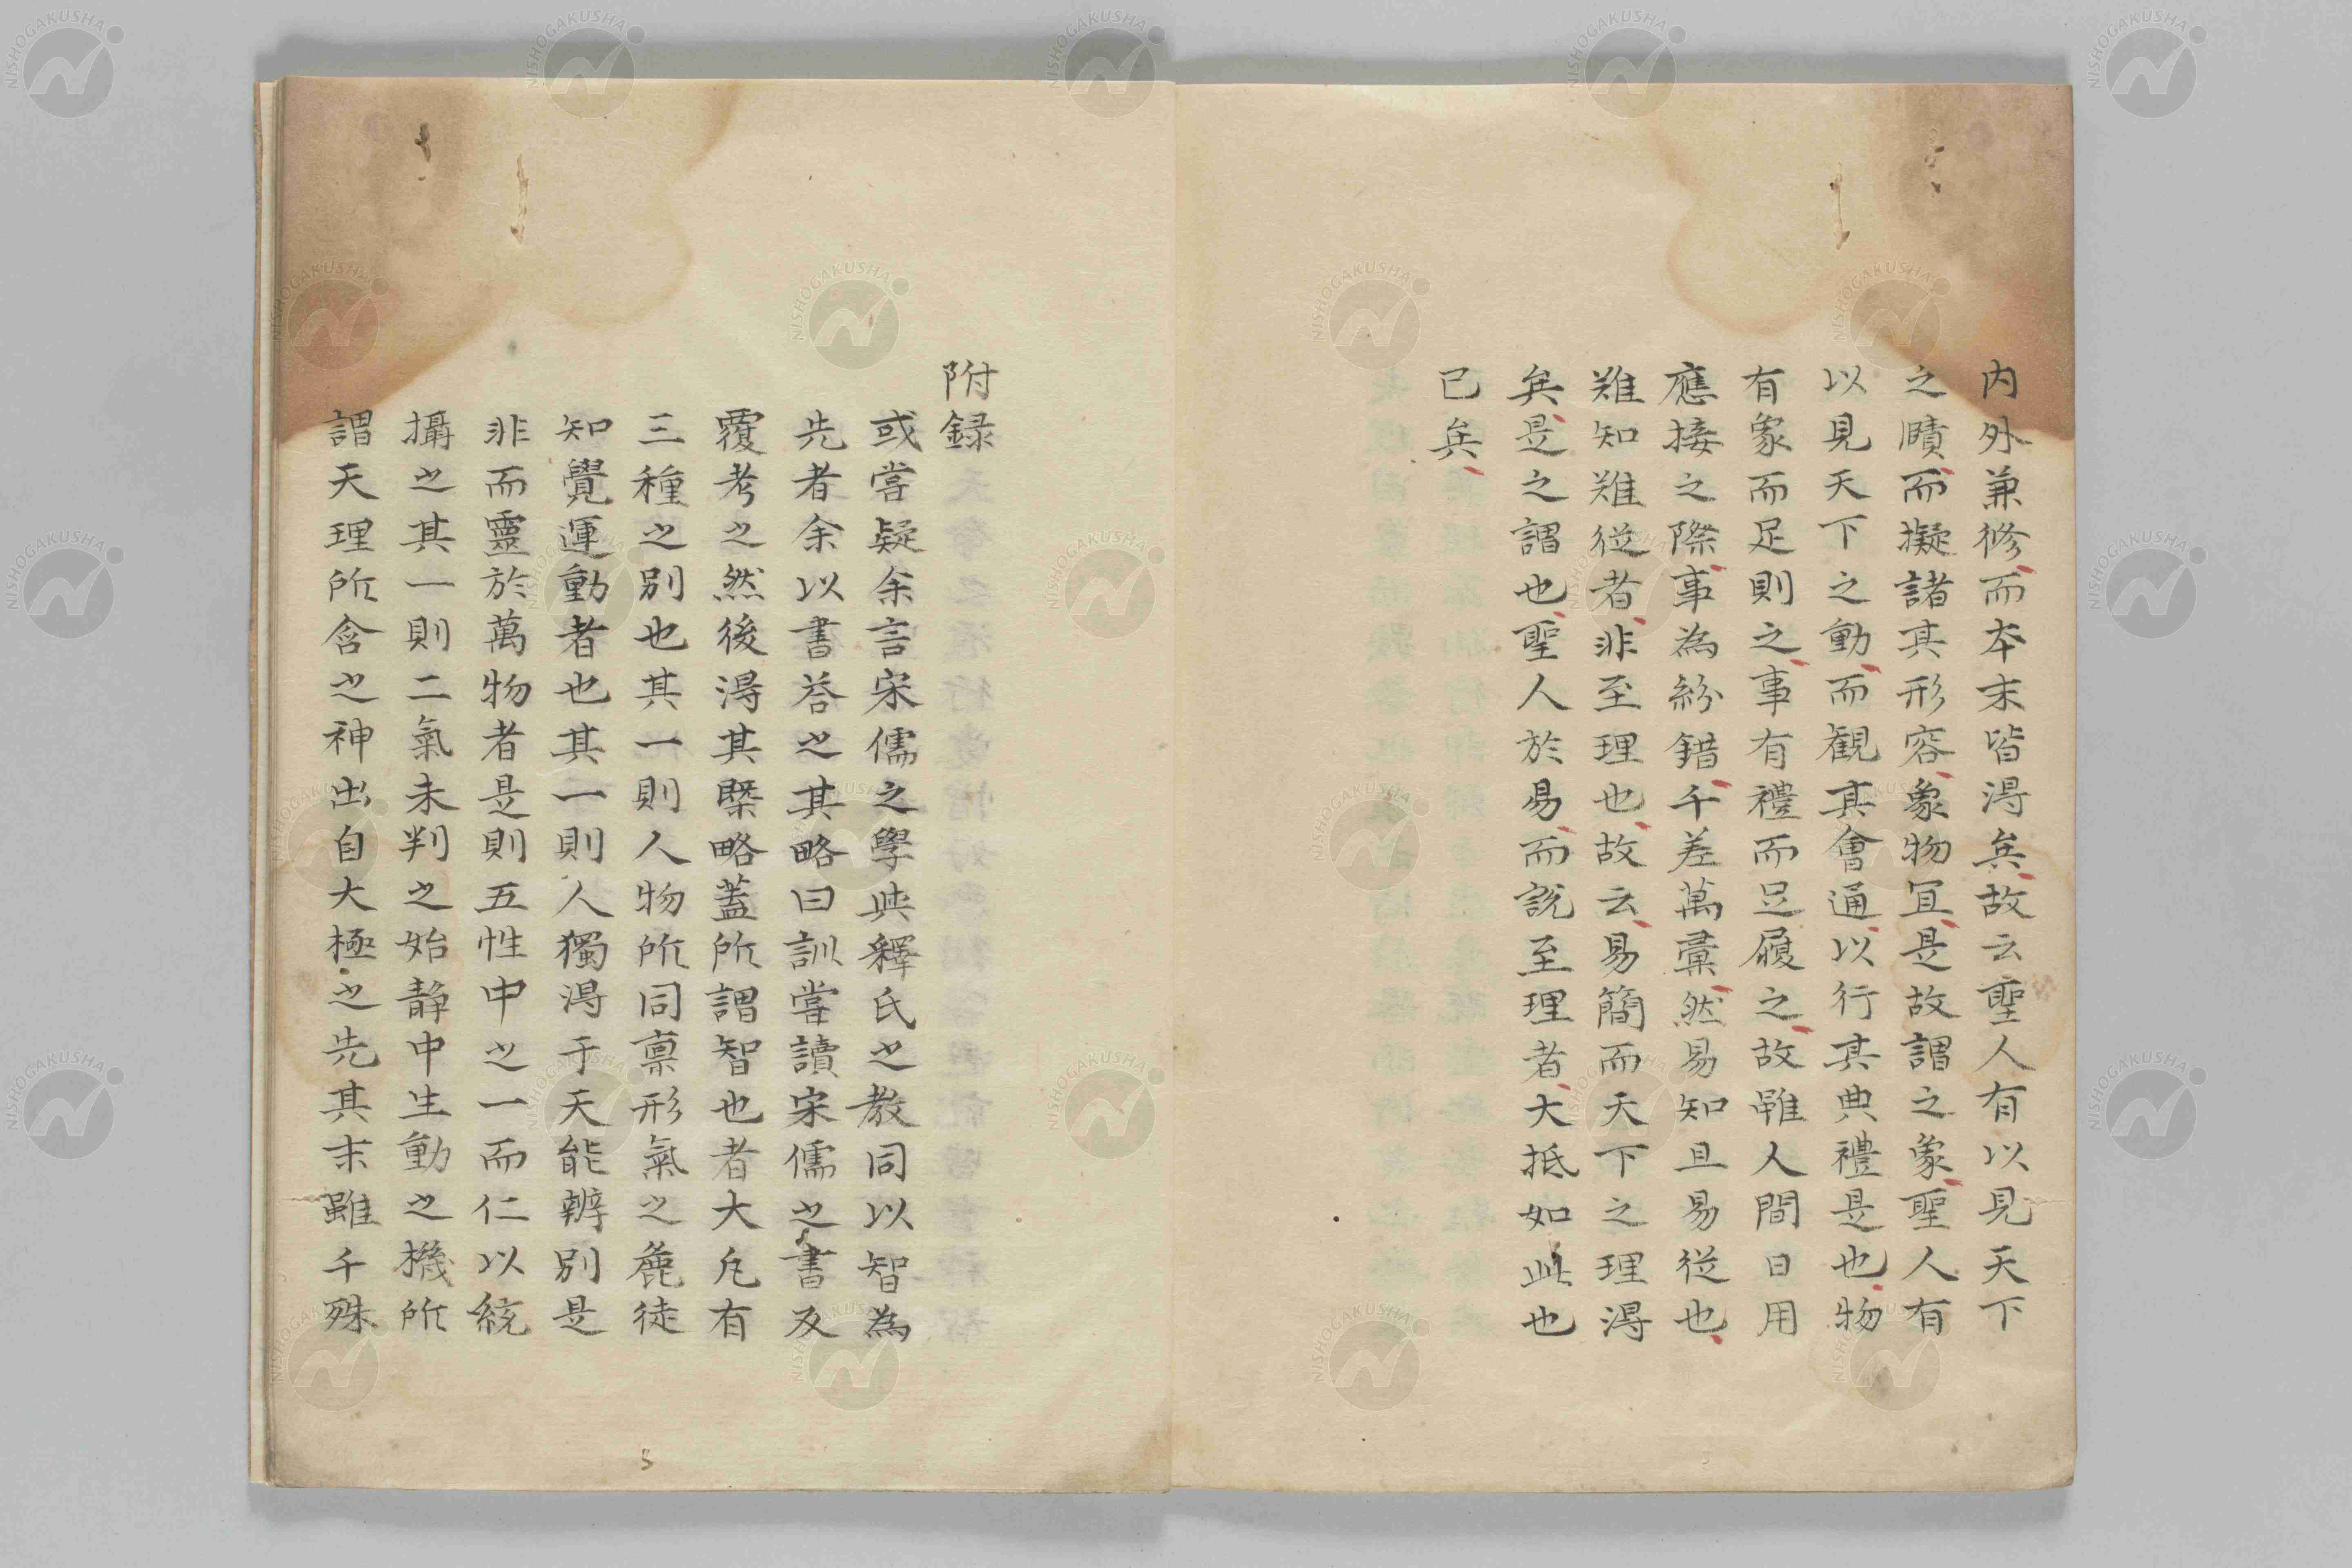 内外兼修而本末皆得矣故云聖人有以見天下
之賾而擬諸其形容象物宜是故謂之象聖人有
以見天下之動而觀其會通以行其典禮是也物
有象而足則之事有禮而足履之故雖人間日用
應接之際事為紛錯千差萬彙然易知且易從也
難知難從者非至理也故云易簡而天下之理得
矣是之謂也聖人於易而說至理者大抵如此也
已矣
附録
或嘗疑余言宋儒之學與釋氏之教同以智為
先者余以書答之其略曰訓嘗讀宋儒之書反
覆考之然後得其槩略蓋所謂智也者大凡有
三種之別也其一則人物所同禀形氣之麁徒
知覺運動者也其一則人獨得于天能辨別是
非而靈於萬物者是則五性中之一而仁以統
攝之其一則二氣未判之始静中生動之機所
謂天理所含之神出自大極之先其末雖千殊
NISHOGAKUSHA